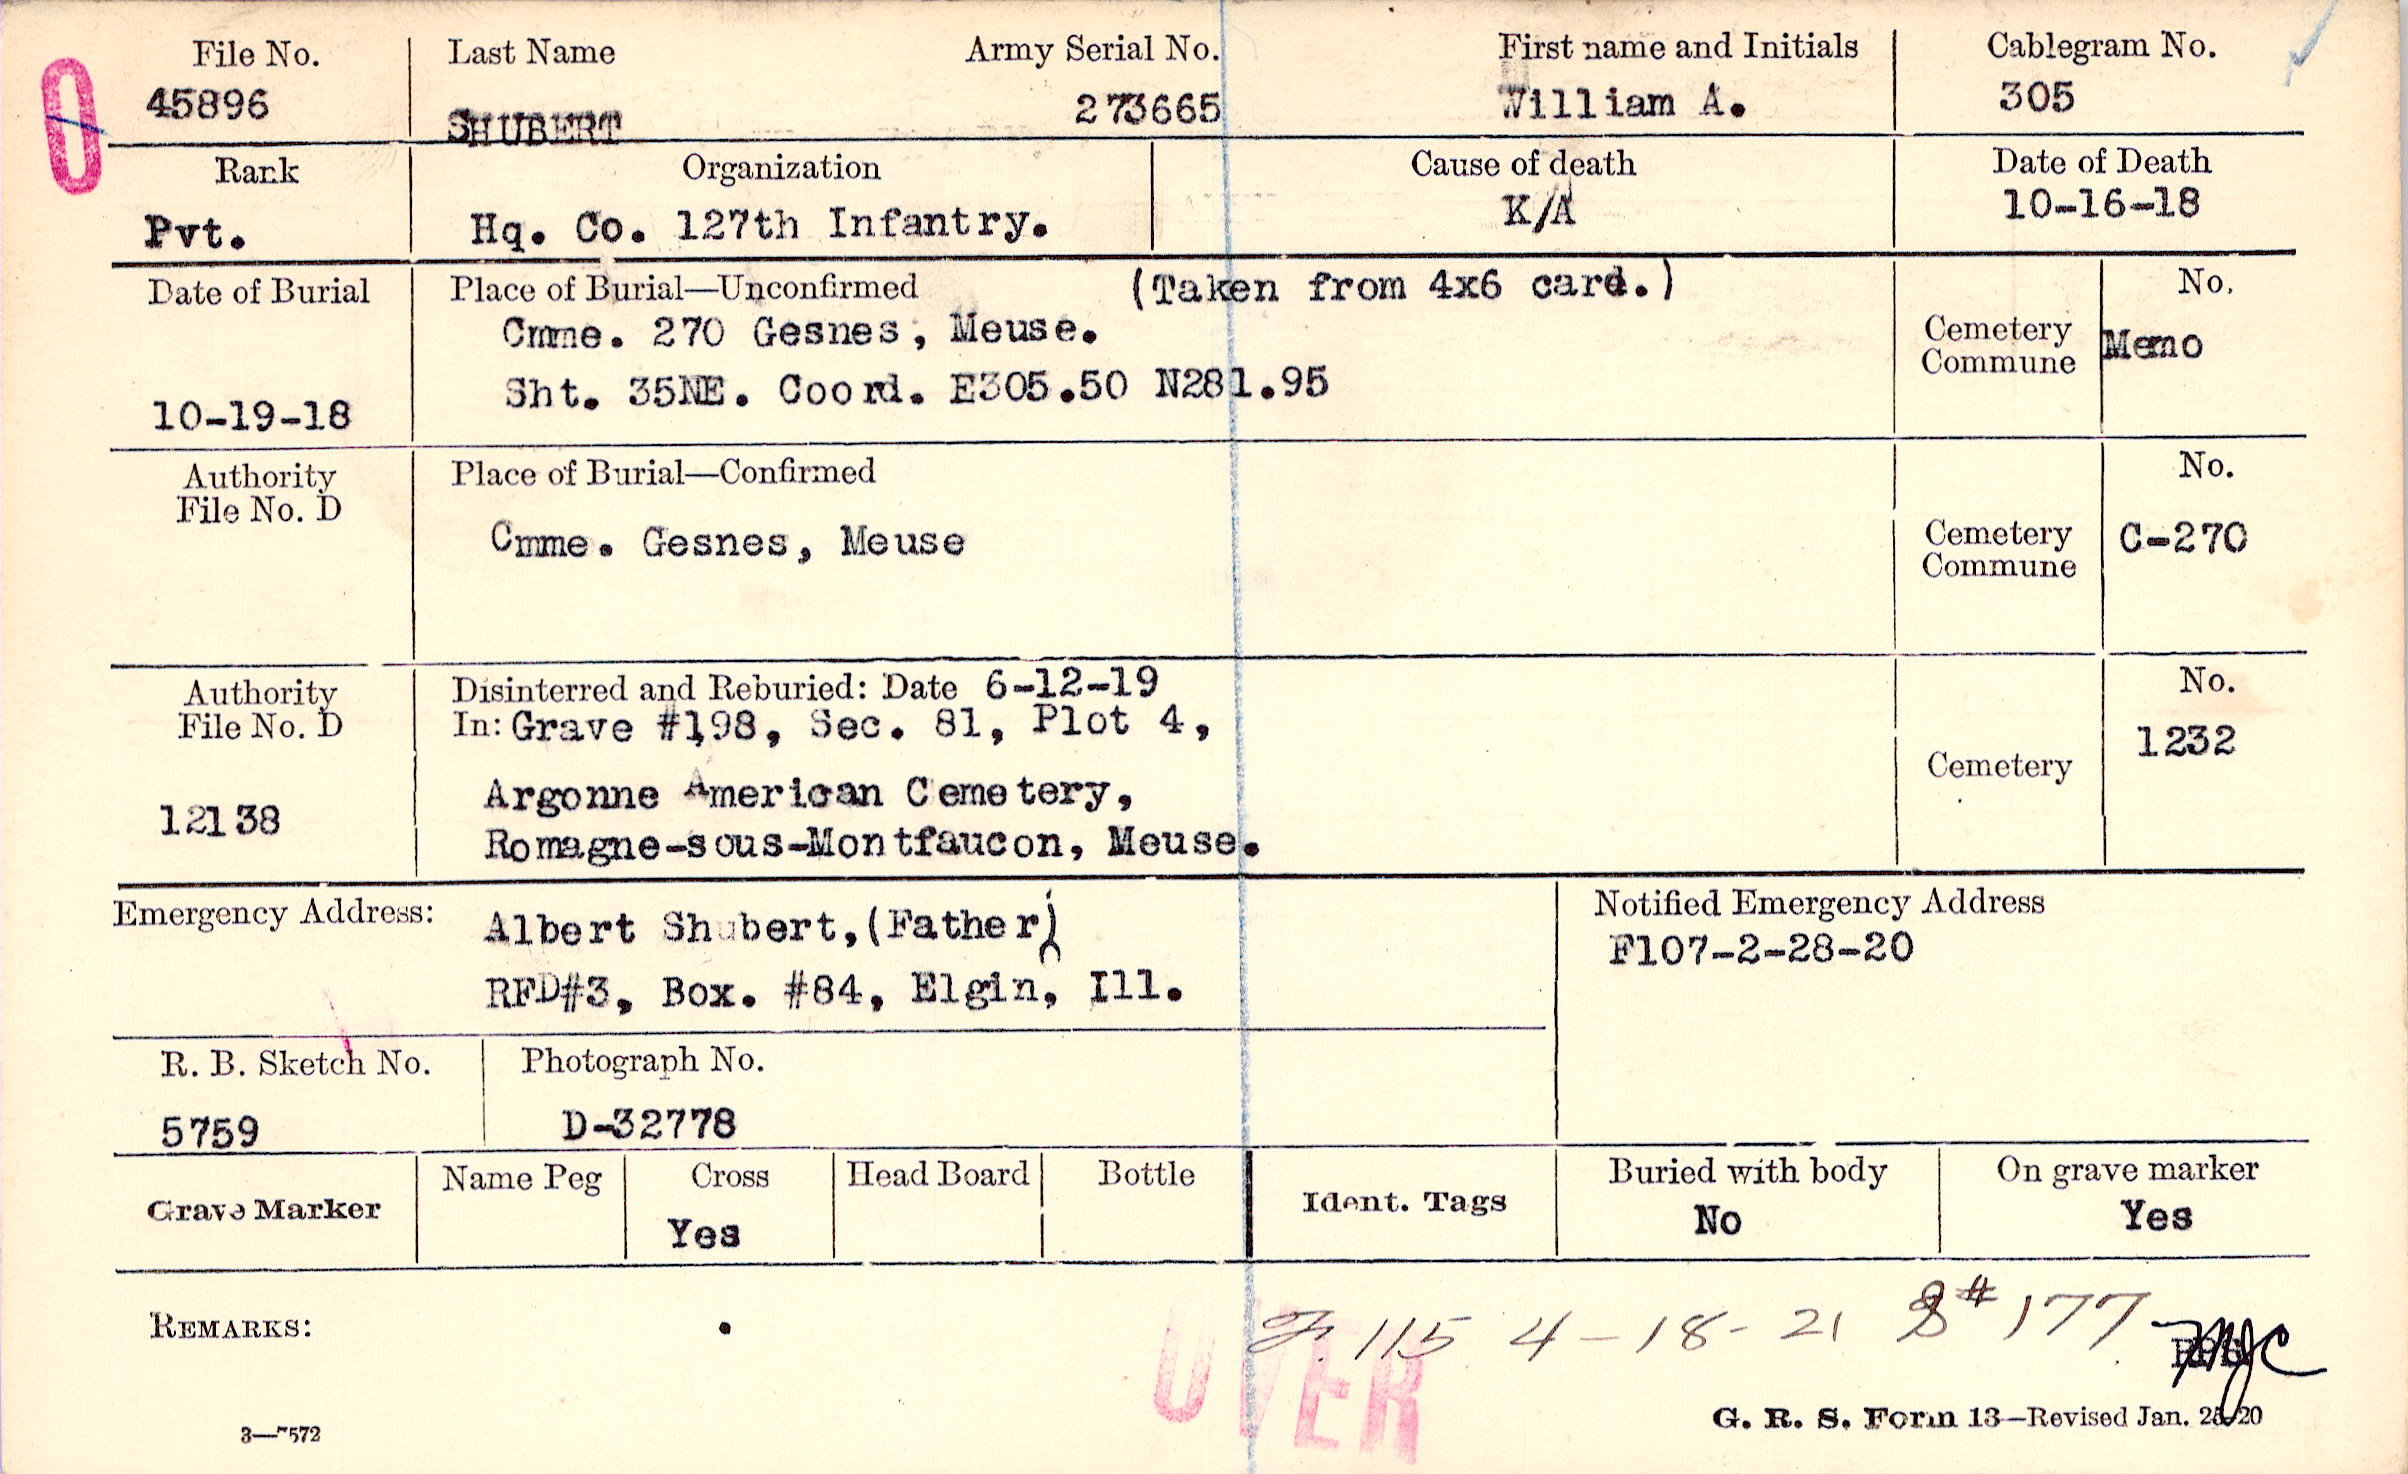 File No. Last Name Army Serial No. First name and Initials Cablegram No.
45896 SHUBERT 273665 William A. 305
Rank Organization Cause of death Date of Death
Pvt. Hq. Co. 127th Infantry. K/A 10-16-18
Date of Burial Place of Burial—Unconfirmed (Taken from 4x6 card.) No.
Cmme. 270 Gesnes, Meuse. Cemetery Commune Memo
10-19-18 Sht. 35NE. Coord. E305.50 N281.95
Authority Place of Burial—Confirmed No.
File No. D
Cmme. Gesnes, Meuse Cemetery Commune C-270
Authority Disinterred and Reburied: Date 6-12-19 No.
File No. D In: Grave #198, Sec. 81, Plot 4, 1232
Cemetery
12138 Argonne American Cemetery,
Romagne-sous-Montfaucon, Meuse.
Emergency Address: Albert Shubert,(Father) Notified Emergency Address
F107-2-28-20
RFD#3, Box. #84, Elgin, Ill.
R. B. Sketch No. Photograph No.
5759 D-32778
Grave Marker Name Peg Cross Head Board Bottle Ident. Tags Buried with body On grave marker
Yes No Yes
REMARKS: F. 115 4-18-21 # 177
OVER
3—7572 G. R. S. Form 13—Revised Jan.